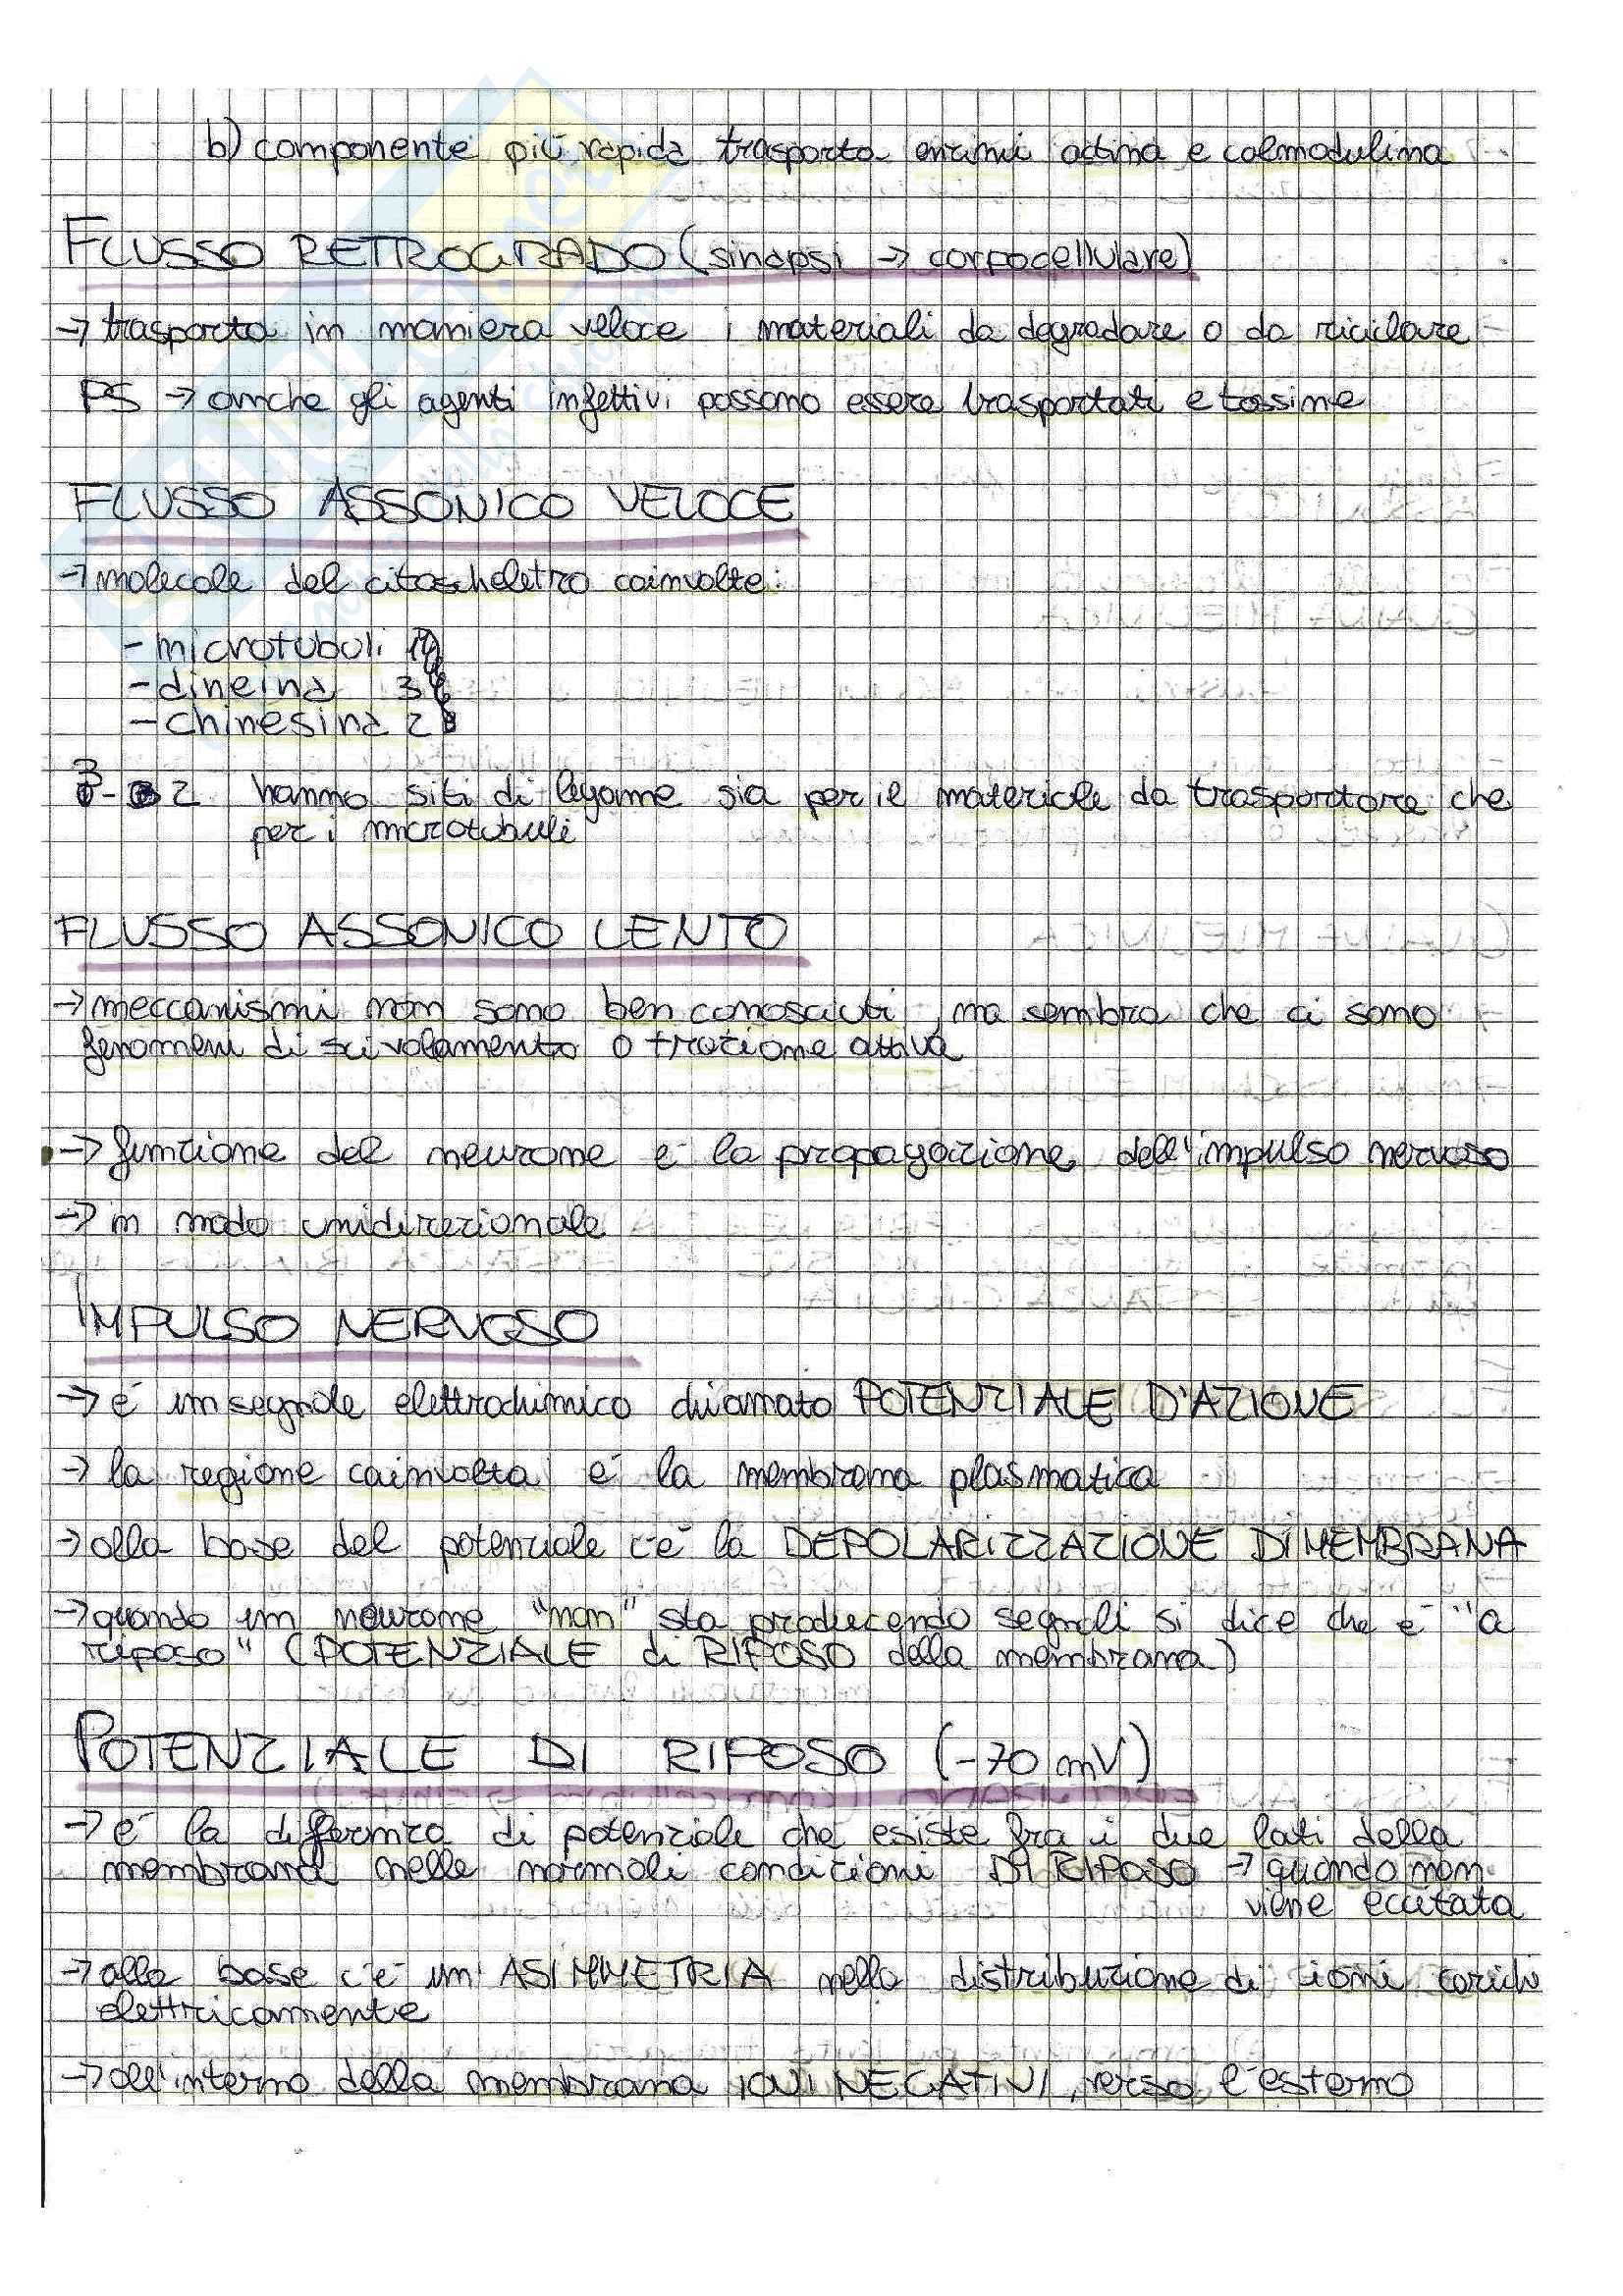 b) componente più rapida trasporta enzimi actina e calmodulina
FLUSSO RETROGRADO (sinapsi → corpocellulare)
→ trasporta in maniera veloce i materiali da degradare o da riciclare
PS → anche gli agenti infettivi possono essere trasportati e tossine
FLUSSO ASSONICO VELOCE
→ molecole del citoscheletro coinvolte:
- microtuboli 1
- dineina 3
- chinesina 2
3 - 2 hanno siti di legame sia per il materiale da trasportare che
per i microtubuli
FLUSSO ASSONICO LENTO
→ meccanismi non sono ben conosciuti, ma sembra che ci sono
fenomeni di scivolamento o trazione attiva
→ funzione del neurone è la propagazione dell'impulso nervoso
→ in modo unidirezionale
IMPULSO NERVOSO
→ è un segnale elettrochimico chiamato POTENZIALE D'AZIONE
→ la regione coinvolta è la membrana plasmatica
→ alla base del potenziale c'è la DEPOLARIZZAZIONE DI MEMBRANA
→ quando un neurone "non" sta producendo segnali si dice che è "a
riposo" (POTENZIALE di RIPOSO della membrana)
POTENZIALE DI RIPOSO (-70 mV)
→ è la differenza di potenziale che esiste fra i due lati della
membrana nelle normali condizioni DI RIPOSO → quando non
viene eccitata
→ alla base c'è un'ASIMMETRIA nella distribuzione di ioni carichi
elettricamente
→ all'interno della membrana IONI NEGATIVI, verso l'esterno